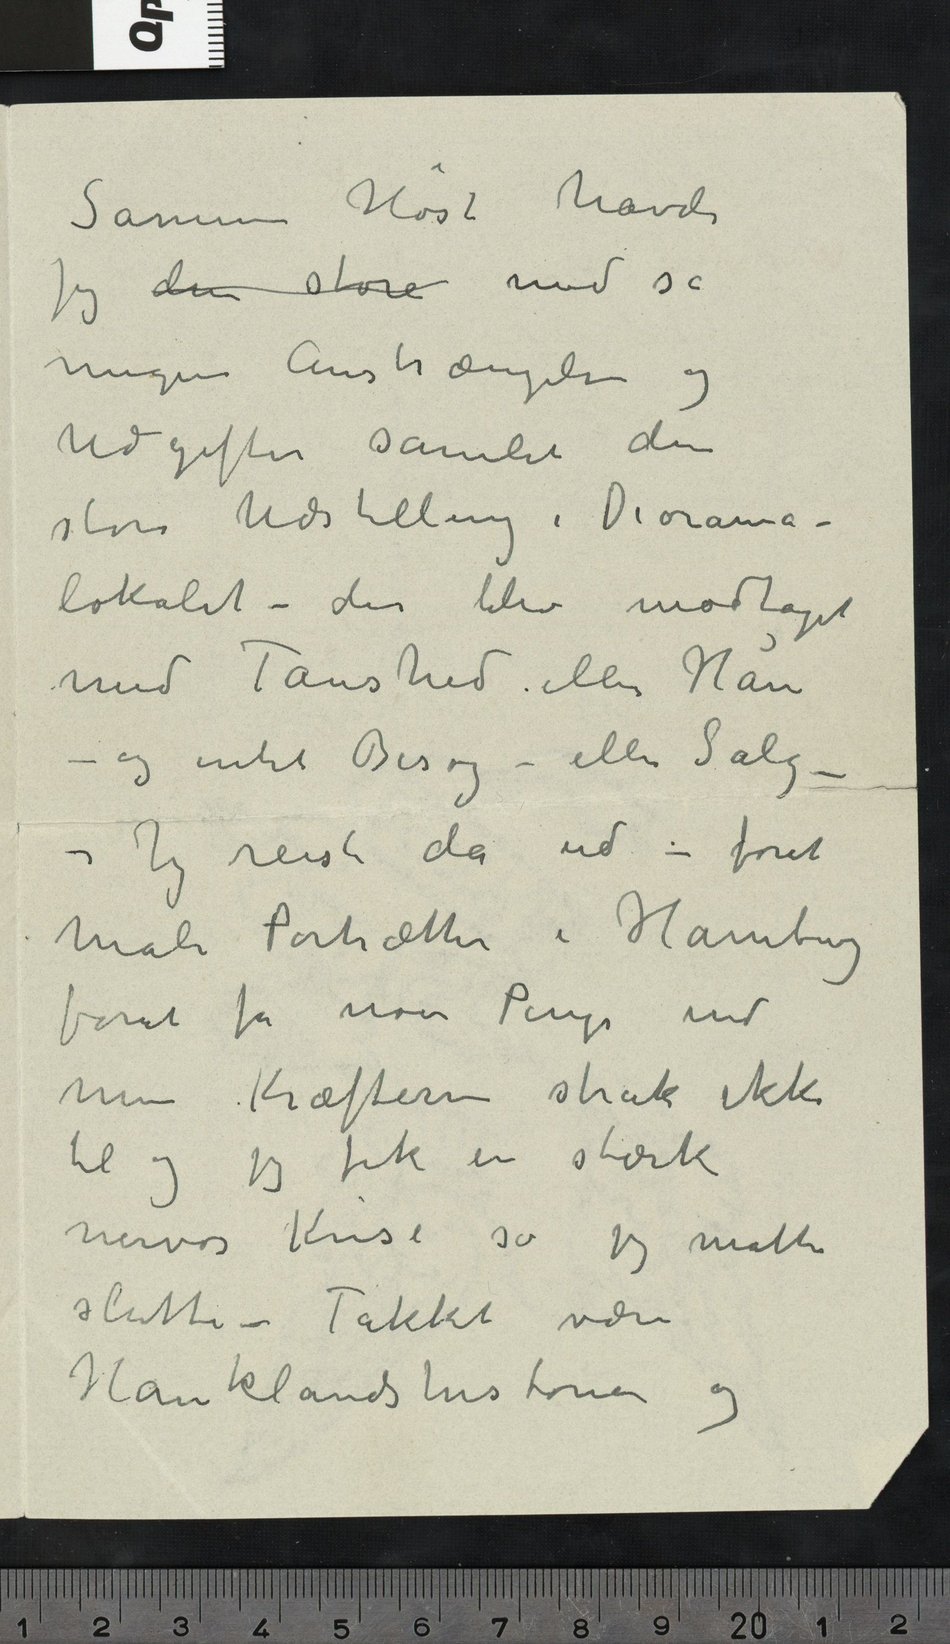 Samme Höst havde
jeg ~~den store~~ med så
megen Anstrængelse og
Udgifter samlet den
store Udstilling i Diorama-
lokalet – der blev modtaget
med Taushed eller Hån
– og intet Besøg – eller Salg –
– Jeg reiste da ud – forat
male Portrætter i Hamburg
forat få noen Penge ind
men Kræfterne strak ikke
til og jeg fik en stærk
nervøs Krise så jeg måtte
slutte – Takket være
Hauklandshistorien og
1 2 3 4 5 6 7 8 9 20 1 2